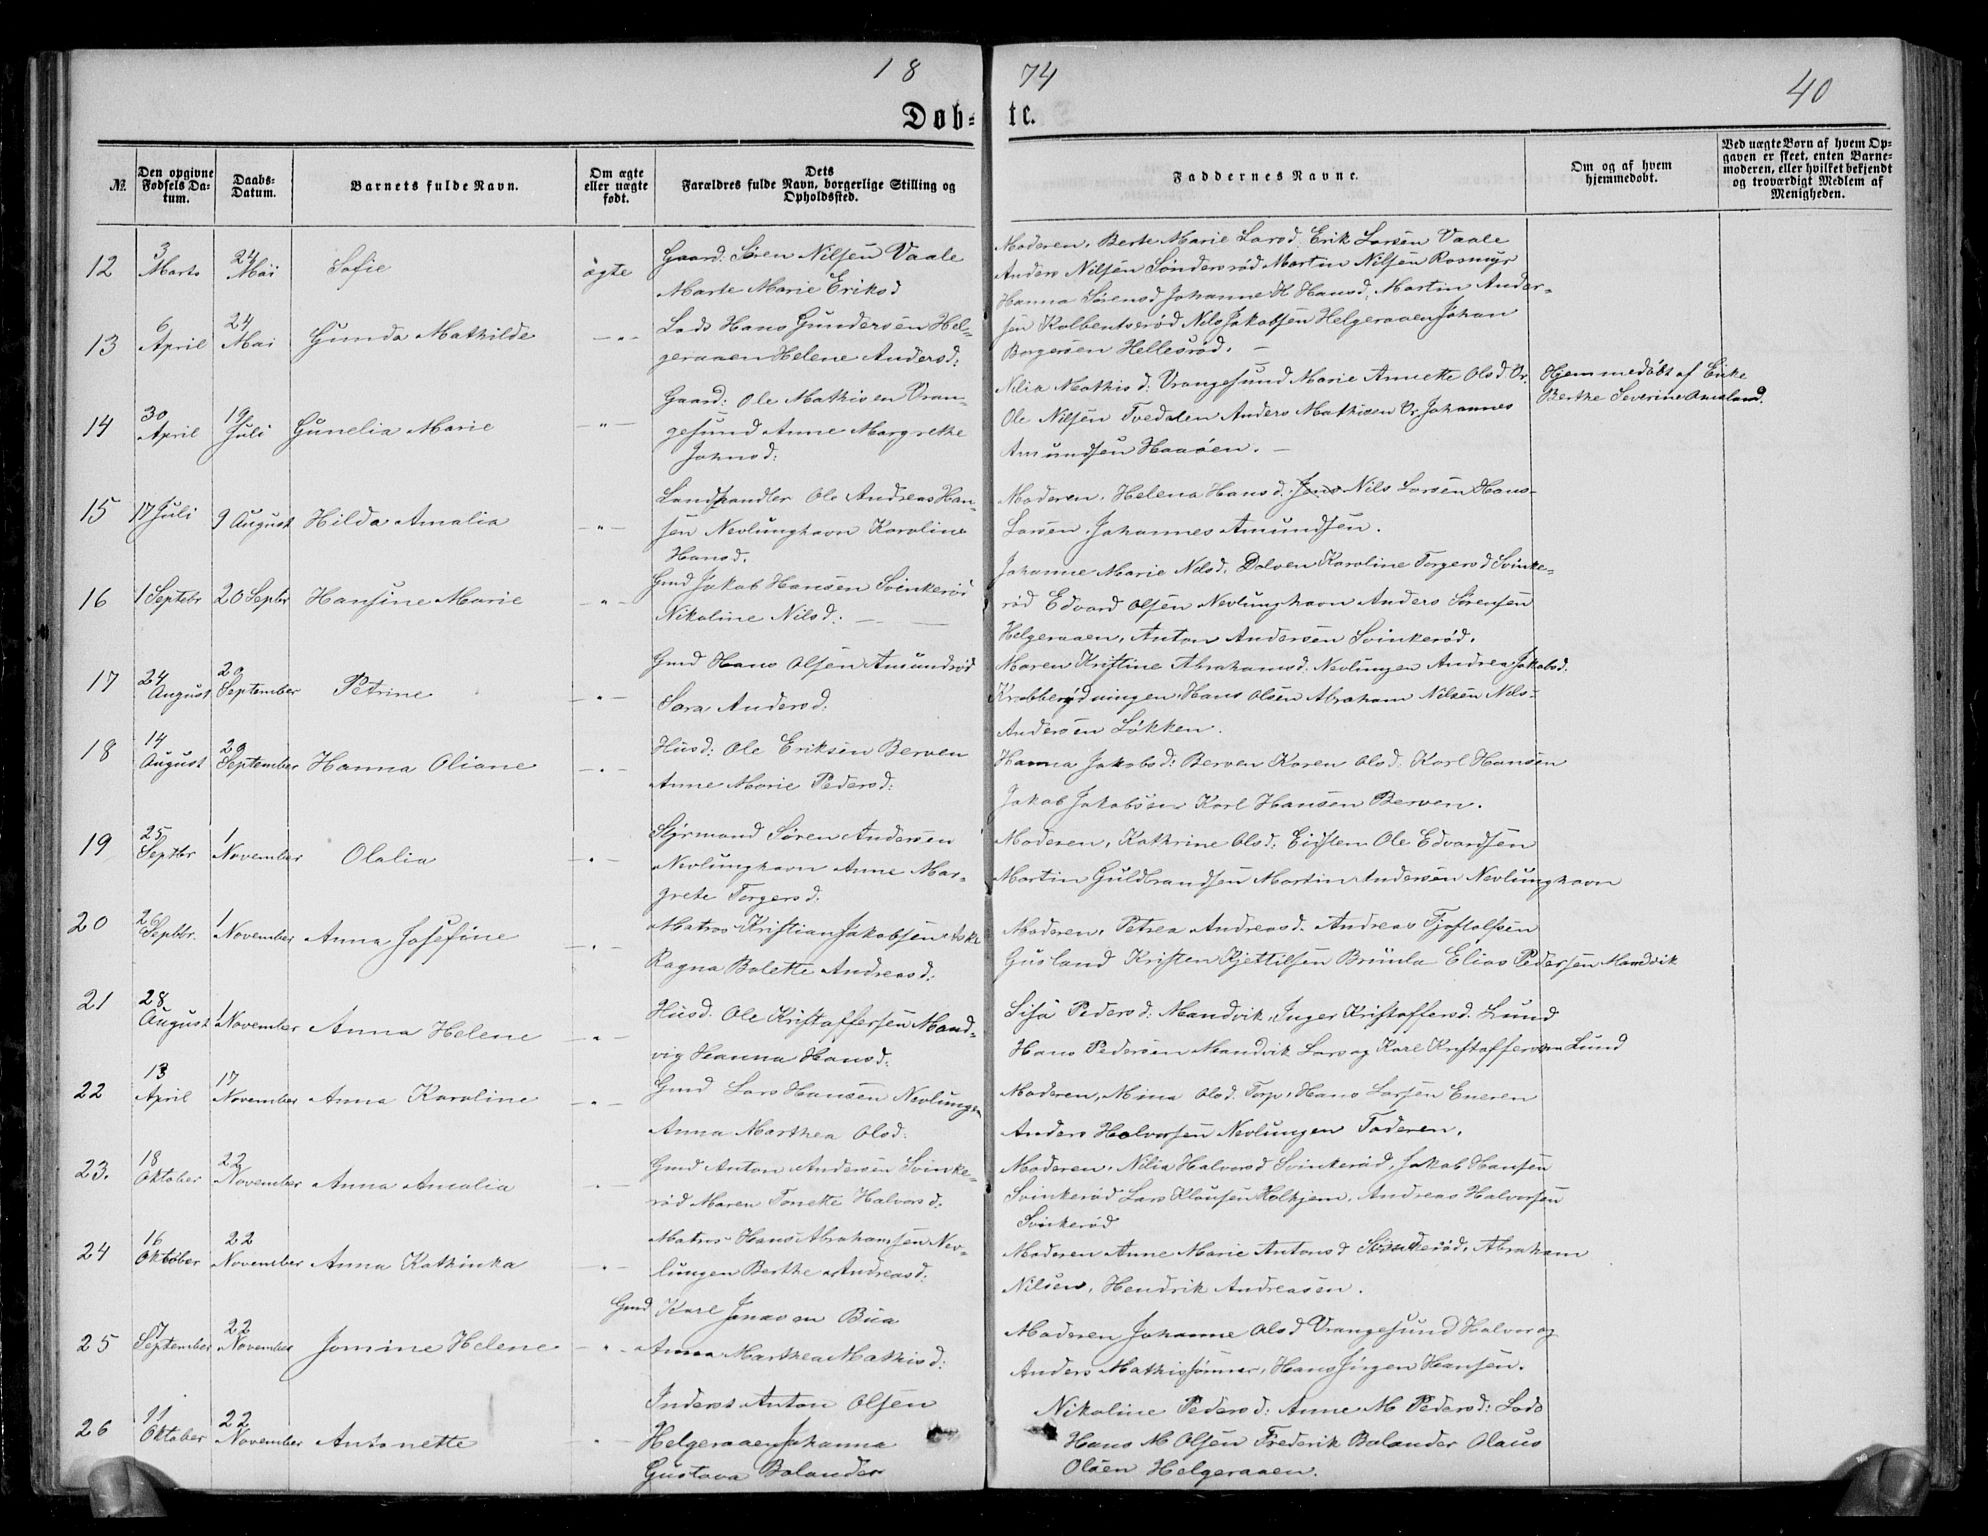 18 74 40
Døbte.
№
Den opgivne Fødsels Datum.
Daabs-Datum.
Barnets fulde Navn.
Om ægte eller uægte født.
Dets Forældres fulde Navn, borgerlige Stilling og Opholdssted.
Faddernes Navne.
Om og af hvem hjemmedøbt.
Ved uægte Børn af hvem Opgaven er skeet, enten Barnemoderen, eller hvilket bekjendt og troværdigt Medlem af Menigheden.
12 3 Marts 24 Mai Sofie ægte
Gaard: Søren Nilsen Vaale
Marte Marie Eriksd
Moderen, Berte Marie Larsd. Erik Larsen Vaale
Anders Nilsen Søndersrød Martin Nilsen Rosmyr
13 6 April 24 Mai Gunda Mathilde —"—
Lods Hans Gundersen Hel-
geraaen Helene Andersd:
Hanna Sørensd Johanne H Hansd, Martin Ander-
sen Kolbentserød Nils Jakobsen Helgeraaen Johan
Borgersen Hellesrød. —
14 30 April 19 Juli Gunelia Marie —"—
Gaard: Ole Mathisen Vran-
gesund Anne Margrethe
Johnsd:
Nilia Mathisd. Vrangesund Marie Annette Olsd Vr.
Ole Nilsen Tvedalen Anders Mathisen Vr. Johannes
Amundsen Haaøen. —
Hjemmedøbt af Enke
Berthe Severine Omsland.
15 17 Juli 9 August Hilda Amalia —"—
Landhandler Ole Andreas Han-
sen Nevlunghavn Karoline
Hansd.
Moderen, Helena Hansd. Jens Nils Larsen Hans-
Larsen, Johannes Amundsen.
16 1 Septebr 20 Septbr Hansine Marie —"—
Gmd Jakob Hansen Svinkerød
Nikoline Nilsd: —
Johanne Marie Nilsd. Dolven Karoline Torgersd Svinke-
rød Edvard Olsen Nevlunghavn Anders Sørensen
Helgeraaen, Anton Andersen Svinkerød.
17 24 August 20 September Petrine —"—
Gmd Hans Olsen Amundrød
Sara Andersd.
Maren Kristine Abrahamsd. Nevlungen Andrea Jakobsd.
Krabberødningen Hans Olsen Abraham Nilsen Nils-
Andersen Løkken.
18 14 August 20 September Hanna Oliane —"—
Husd: Ole Eriksen Berven
Anne Marie Pedersd:
Hanna Jakobsd: Berven Karen Olsd. Karl Hansen
Jakob Jakobsen Karl Hansen Berven.
19 25 Septbr 1 November Olalia —"—
Styrmand Søren Andersen
Nevlunghavn Anne Mar-
grete Torgersd.
Moderen, Kathrine Olsd. Eidsten Ole Edvardsen
Martin Guldbrandsen Martin Andersen Nevlunghavn
20 26 Septbr. 1 November Anna Josefine —"—
Matros Kristian Jakobsen Aske
Ragna Bolette Andreasd.
Moderen, Petrea Andreasd. Andreas Tjostolfsen
Gusland Kristen Kjettilsen Brunla Elias Pedersen Mandvik
21 28 August 1 November Anna Helene —"—
Husd. Ole Kristoffersen Mand-
vig Hanna Hansd.
Sisa Pedersd. Mandvik, Inger Kristoffersd. Lund
Hans Pedersen Mandvik Lars og Karl Kristoffersen Lund
22 13 April 17 November Anna Karoline —"—
Gmd Lars Hansen Nevlungen
Anna Marthea Olsd.
Moderen, Mina Olsd. Torp, Hans Larsen Eneren
Anders Halvorsen Nevlungen Faderen.
23. 18 Oktober 22 November Anna Amalia —"—
Gmd Anton Andersen Svinke-
rød Maren Tonette Halvorsd.
Moderen, Nilia Halvorsd Svinkerød, Jakob Hansen
Svinkerød Lars Klausen Holkjem, Andreas Halvorsen
Svinkerød
24 16 Oktober 22 November Anna Kathinka —"—
Matros Hans Abrahamsen Nev-
lungen Berthe Andreasd.
Moderen Anne Marie Antonsd Søndersrød, Abraham
Nilsen, Hendrik Andreasen.
25 7 September 22 November Jomine Helene —"—
Gmd Karl Jonassen Bua
Anna Marthea Mathisd:
Moderen Johanne Olsd Vrangesund Halvor og
Anders Mathissønner, Hans Jørgen Hansen.
26 11 Oktober 22 November Antonette —"—
Inderst Anton Olsen
Helgeraaen Johanna
Gustava Bolander
Nikoline Pedersd: Anne M Pedersd: Lods
Hans M Olsen Frederik Bolander Olaus
Olsen Helgeraaen.